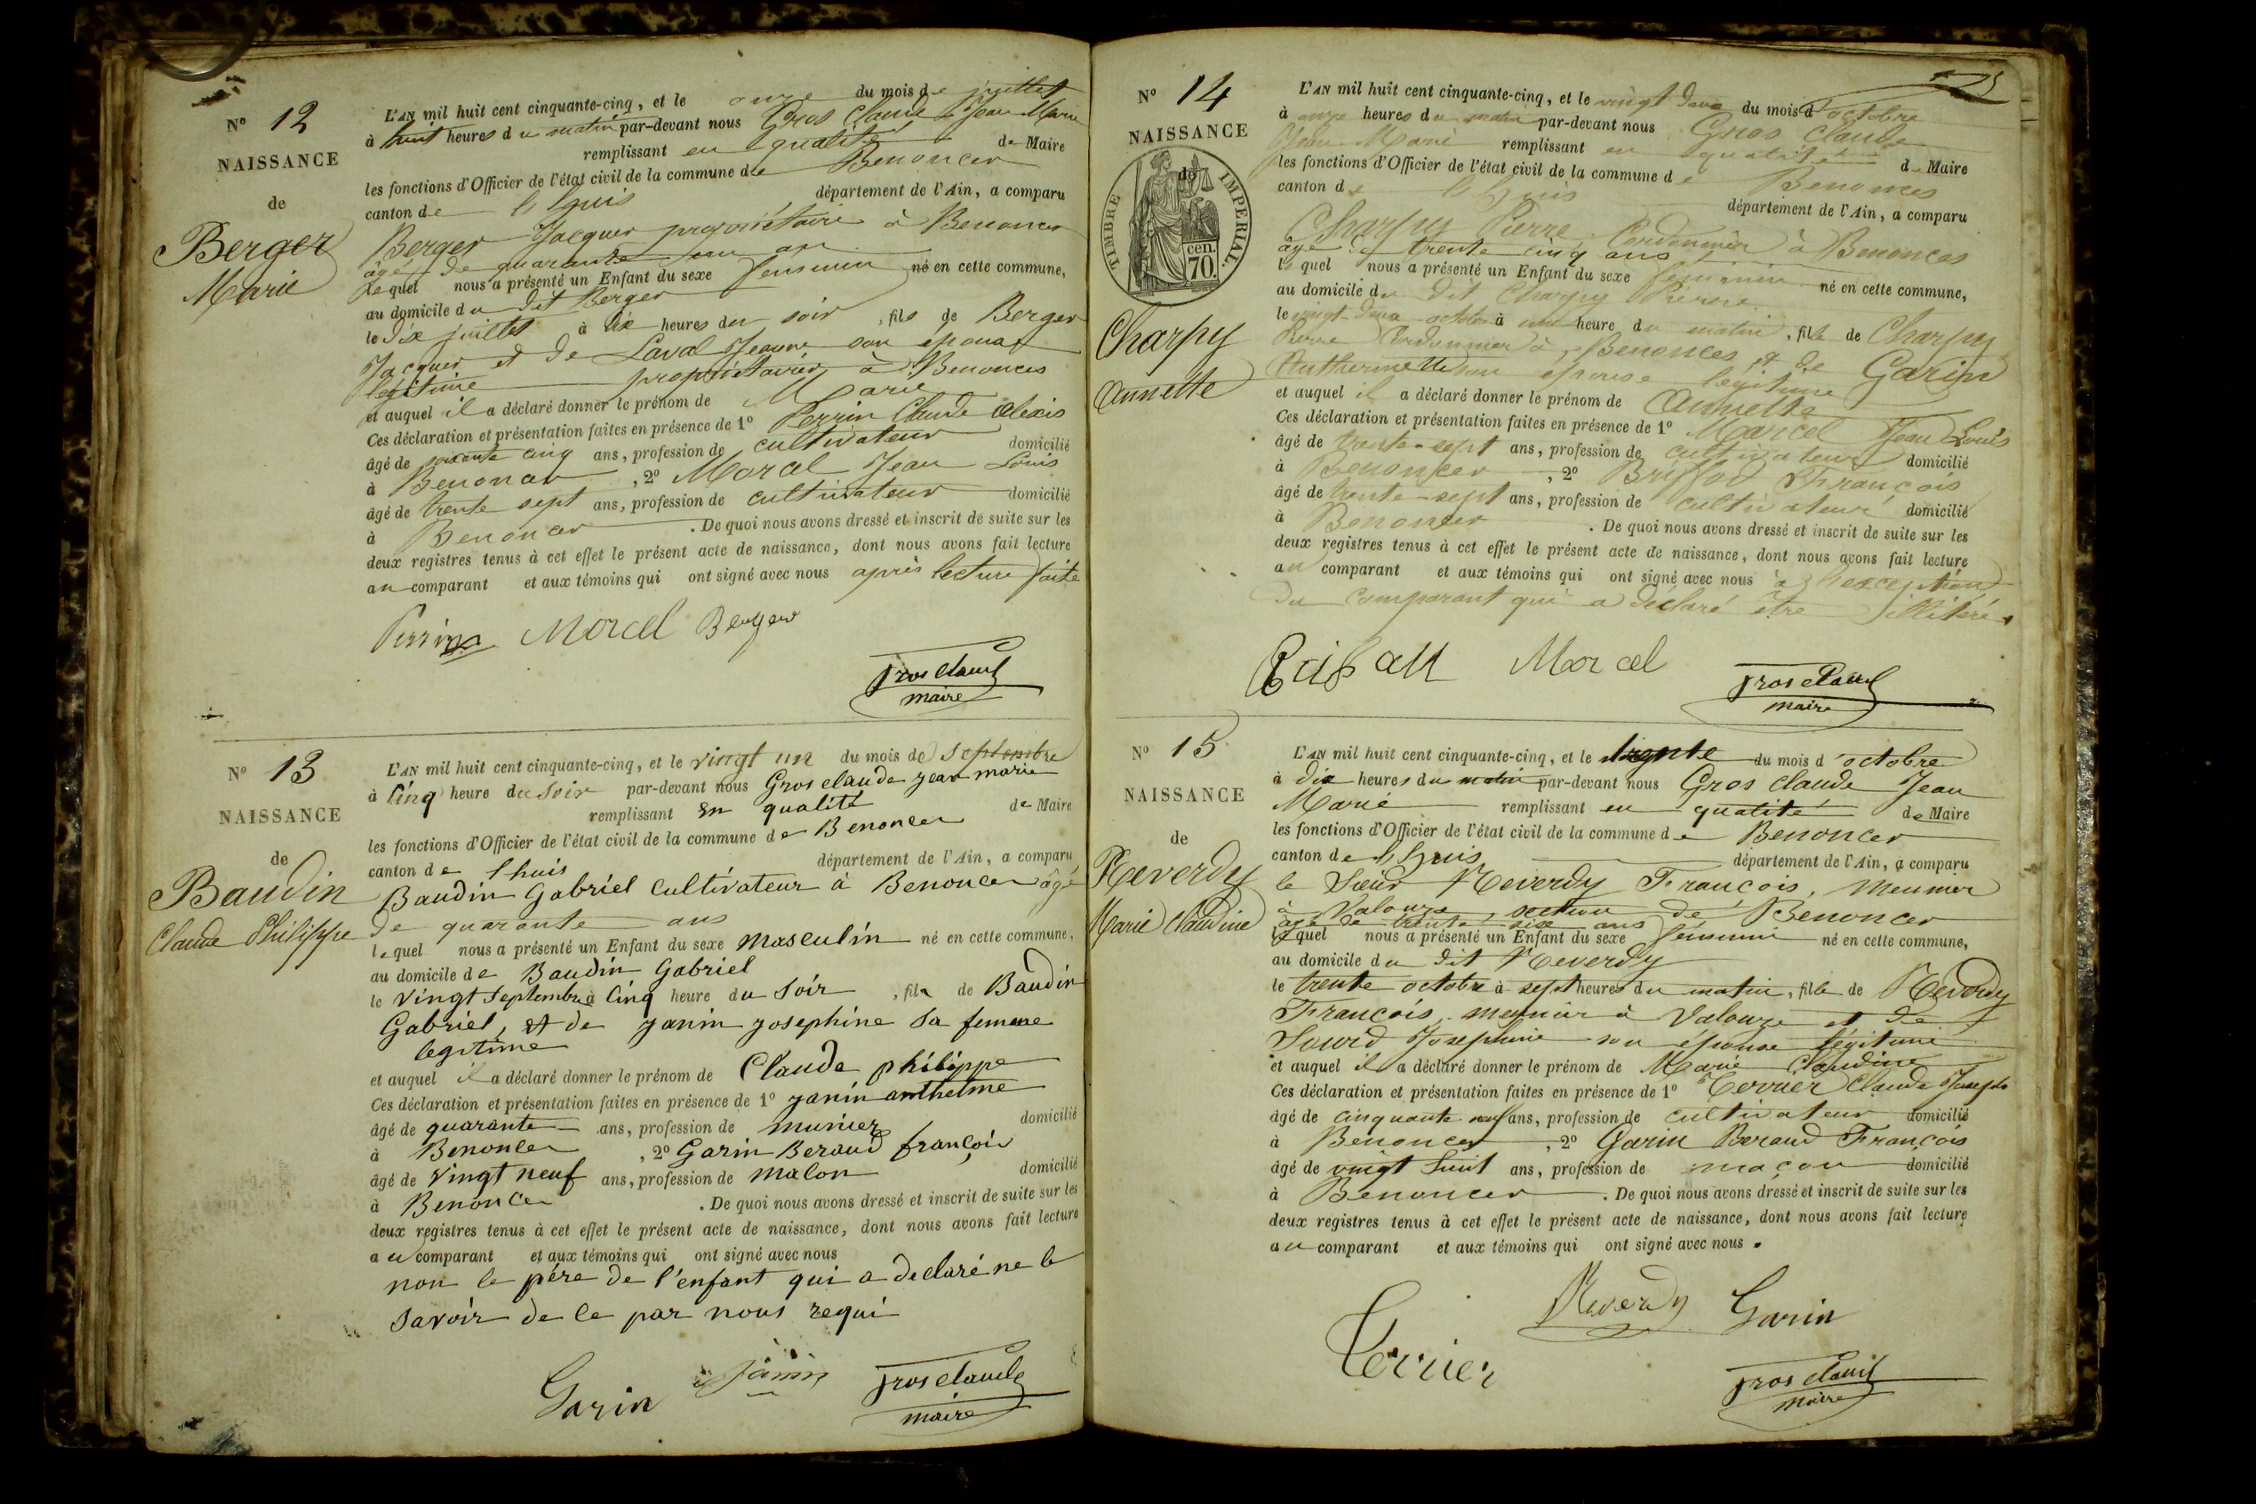 N° 12
NAISSANCE
de
Berger
Marie
L'AN mil huit cent cinquante-cinq, et le onze du mois de juillet
à huit heures du matin par-devant nous Gros Claude Jean Marie
remplissant en qualité de Maire
les fonctions d'Officier de l'état civil de la commune de Benonces
canton de lhuis département de l'Ain, a comparu
Berger Jacques propriétaire à Benonces
âgé de quarante un an
lequel nous a présenté un Enfant du sexe feminin né en cette commune,
au domicile du dit Berger
le dix juillet à dix heures du soir, fils de Berger
Jacques et de Laval Jeanne son épouse
légitime propriétaires à Benonces
et auquel il a déclaré donner le prénom de Marie
Ces déclaration et présentation faites en présence de 1° Perrin Claude Alexis
âgé de cinq ans, profession de cultivateur domicilié
à Benonces, 2° Marcel Jean Louis
âgé de trente sept ans, profession de cultivateur domicilié
à Benonces. De quoi nous avons dressé et inscrit de suite sur les
deux registres tenus à cet effet le présent acte de naissance, dont nous avons fait lecture
au comparant et aux témoins qui ont signé avec nous après lecture faite
Perrin Marcel Berger
Gros Claude
maire
N° 13
NAISSANCE
de
Baudin
Claude Philippe
L'AN mil huit cent cinquante-cinq, et le vingt un du mois de septembre
à Cinq heure du Soir par-devant nous Gros claude jean marie
remplissant en qualité de Maire
les fonctions d'Officier de l'état civil de la commune de Benonces
canton de lhuis département de l'Ain, a comparu
Baudin Gabriel Cultivateur à Benonces âgé
de quarante ans
lequel nous a présenté un Enfant du sexe masculin né en cette commune,
au domicile de Baudin Gabriel
le vingt septembre à Cinq heure du Soir, fils de Baudin
Gabriel, et de janin josephine sa femme
legitime
et auquel il a déclaré donner le prénom de Claude philippe
Ces déclaration et présentation faites en présence de 1° janin anthelme
âgé de quarante ans, profession de munier domicilié
à Benonces, 2° Garin Beraud françois
âgé de vingt neuf ans, profession de malon domicilié
à Benonces. De quoi nous avons dressé et inscrit de suite sur les
deux registres tenus à cet effet le présent acte de naissance, dont nous avons fait lecture
au comparant et aux témoins qui ont signé avec nous
non le père de l'enfant qui a declaré ne le
savoir de ce par nous requi
Garin janin Gros Claude
maire
N° 14
NAISSANCE
de
TIMBRE IMPERIAL
70 cen.
Charpy
Annette
L'AN mil huit cent cinquante-cinq, et le vingt deux du mois d'octobre
à onze heures du matin par-devant nous Gros Claude
Jean Marie remplissant en qualité de Maire
les fonctions d'Officier de l'état civil de la commune de Benonces
canton de lhuis département de l'Ain, a comparu
Charpy Pierre Cordonnier à Benonces
âgé de trente cinq ans
lequel nous a présenté un Enfant du sexe feminin né en cette commune,
au domicile du dit Charpy Pierre
le vingt deux octobre à une heure du matin, fille de Charpy
Pierre Cordonnier à Benonces et de Garin
Anthermette son épouse légitime
et auquel il a déclaré donner le prénom de Annette
Ces déclaration et présentation faites en présence de 1° Marcel Jean Louis
âgé de trente-sept ans, profession de cultivateur domicilié
à Benonces, 2° François
âgé de trente-sept ans, profession de cultivateur domicilié
à Benonces. De quoi nous avons dressé et inscrit de suite sur les
deux registres tenus à cet effet le présent acte de naissance, dont nous avons fait lecture
au comparant et aux témoins qui ont signé avec nous à l'exception
du comparant qui a déclaré être illitéré.
Marcel Gros Claude
maire
N° 15
NAISSANCE
de
Reverdy
Marie Claudine
L'AN mil huit cent cinquante-cinq, et le trente du mois d'octobre
à dix heures du matin par-devant nous Gros Claude Jean
Marie remplissant en qualité de Maire
les fonctions d'Officier de l'état civil de la commune de Benonces
canton de lhuis département de l'Ain, a comparu
le Sieur Reverdy François, meunier
à Valouze, section de Benonces
âgé de trente six ans
lequel nous a présenté un Enfant du sexe féminin né en cette commune,
au domicile du dit Reverdy
le trente octobre à sept heures du matin, fille de Reverdy
François, meunier à Valouze et de
Sourd Josephine son épouse légitime
et auquel il a déclaré donner le prénom de Marie Claudine
Ces déclaration et présentation faites en présence de 1° Terrier Claude Joseph
âgé de cinquante neuf ans, profession de cultivateur domicilié
à Benonces, 2° Garin Beraud François
âgé de vingt huit ans, profession de maçon domicilié
à Benonces. De quoi nous avons dressé et inscrit de suite sur les
deux registres tenus à cet effet le présent acte de naissance, dont nous avons fait lecture
au comparant et aux témoins qui ont signé avec nous.
Reverdy Garin
Terrier
Gros Claude
maire